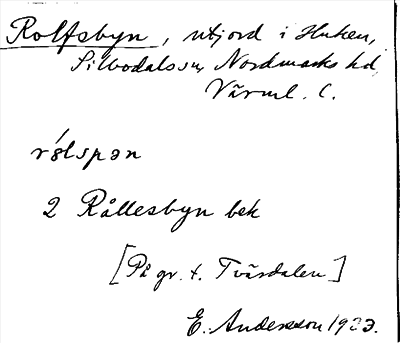 Rolfsbyn, utjord i Huken,
Silbodals sn, Nordmarks hd
Värml. l.
rǿlspən
2 Rållesbyn bek
[På gr. t. Tvärdalen]
E. Andersson 1923.